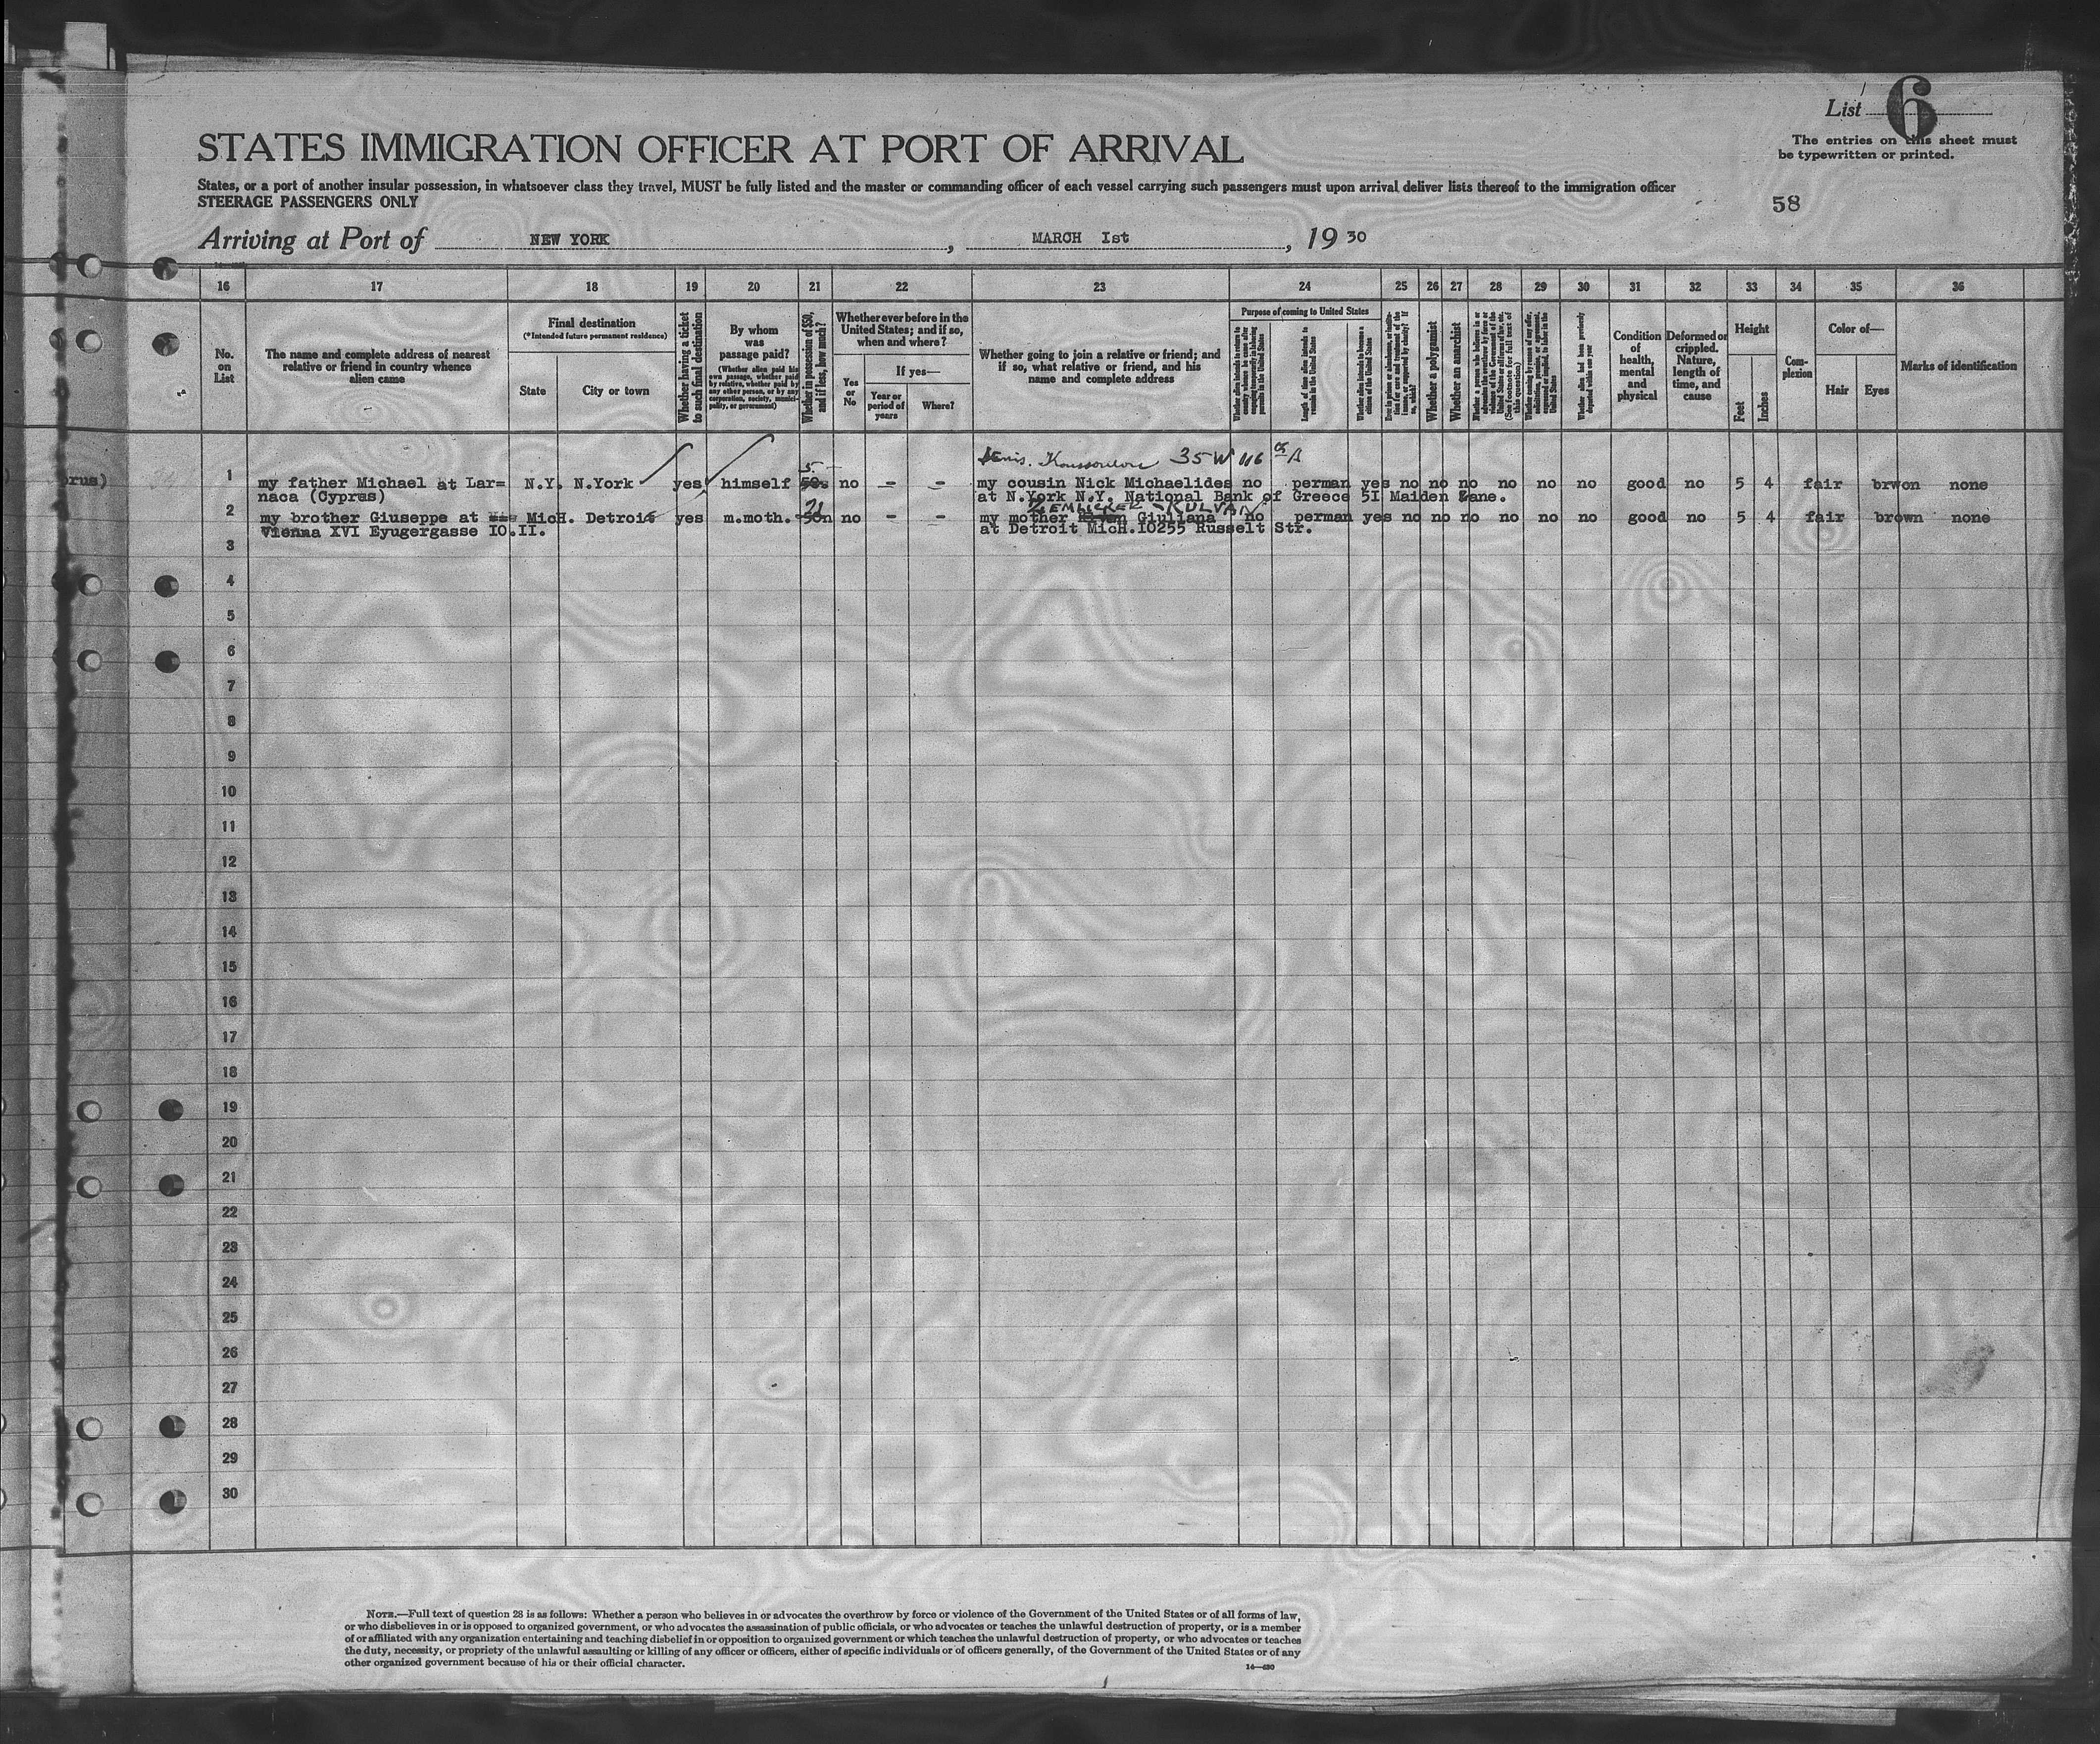 List 6
The entries on this sheet must
be typewritten or printed.
STATES IMMIGRATION OFFICER AT PORT OF ARRIVAL
States, or a port of another insular possession, in whatsoever class they travel, MUST be fully listed and the master or commanding officer of each vessel carrying such passengers must upon arrival deliver lists thereof to the immigration officer
STEERAGE PASSENGERS ONLY
58
Arriving at Port of NEW YORK, MARCH Ist, 19 30
16 17 18 19 20 21 22 23 24 25 26 27 28 29 30 31 32 33 34 35 36
No.
on
List
The name and complete address of nearest
relative or friend in country whence
alien came
Final destination
(*Intended future permanent residence)
State
City or town
Whether having a ticket
to such final destination
By whom
was
passage paid?
(Whether alien paid his
own passage, whether paid
by relative, whether paid by
any other person, or by any
corporation, society, munici-
pality, or government)
Whether in possession of $50,
and if less, how much?
Whether ever before in the
United States; and if so,
when and where?
Yes
or
No
If yes—
Year or
period of
years
Where?
Whether going to join a relative or friend; and
if so, what relative or friend, and his
name and complete address
Purpose of coming to United States
Length of time alien intends to
remain in the United States
Whether alien intends to become a
citizen of the United States
Whether a polygamist
Whether an anarchist
Whether alien had been previously
deported within one year
Condition
of
health,
mental
and
physical
Deformed or
crippled.
Nature,
length of
time, and
cause
Height
Feet
Inches
Com-
plexion
Color of—
Hair
Eyes
Marks of identification
35 W 116
prus)
1 my father Michael at Lar= N.Y. N.York yes himself 5 no - - my cousin Nick Michaelides no perman yes no no no no no no no good no 5 4 fair brwon none
naca (Cyprus) at N.York N.Y. National Bank of Greece 5I Maiden Lane.
2 my brother Giuseppe at MicH. Detroit yes m.moth. no - - my mother Giuliana no perman yes no no no no no no good no 5 4 fair brown none
Vienna XVI Eyugergasse IO.II. at Detroit MicH.IO255 Russelt Str.
3
4
5
6
7
8
9
10
11
12
13
14
15
16
17
18
19
20
21
22
23
24
25
26
27
28
29
30
NOTE.—Full text of question 28 is as follows: Whether a person who believes in or advocates the overthrow by force or violence of the Government of the United States or of all forms of law,
or who disbelieves in or is opposed to organized government, or who advocates the assassination of public officials, or who advocates or teaches the unlawful destruction of property, or is a member
of or affiliated with any organization entertaining and teaching disbelief in or opposition to organized government or which teaches the unlawful destruction of property, or who advocates or teaches
the duty, necessity, or propriety of the unlawful assaulting or killing of any officer or officers, either of specific individuals or of officers generally, of the Government of the United States or of any
other organized government because of his or their official character.
14—480